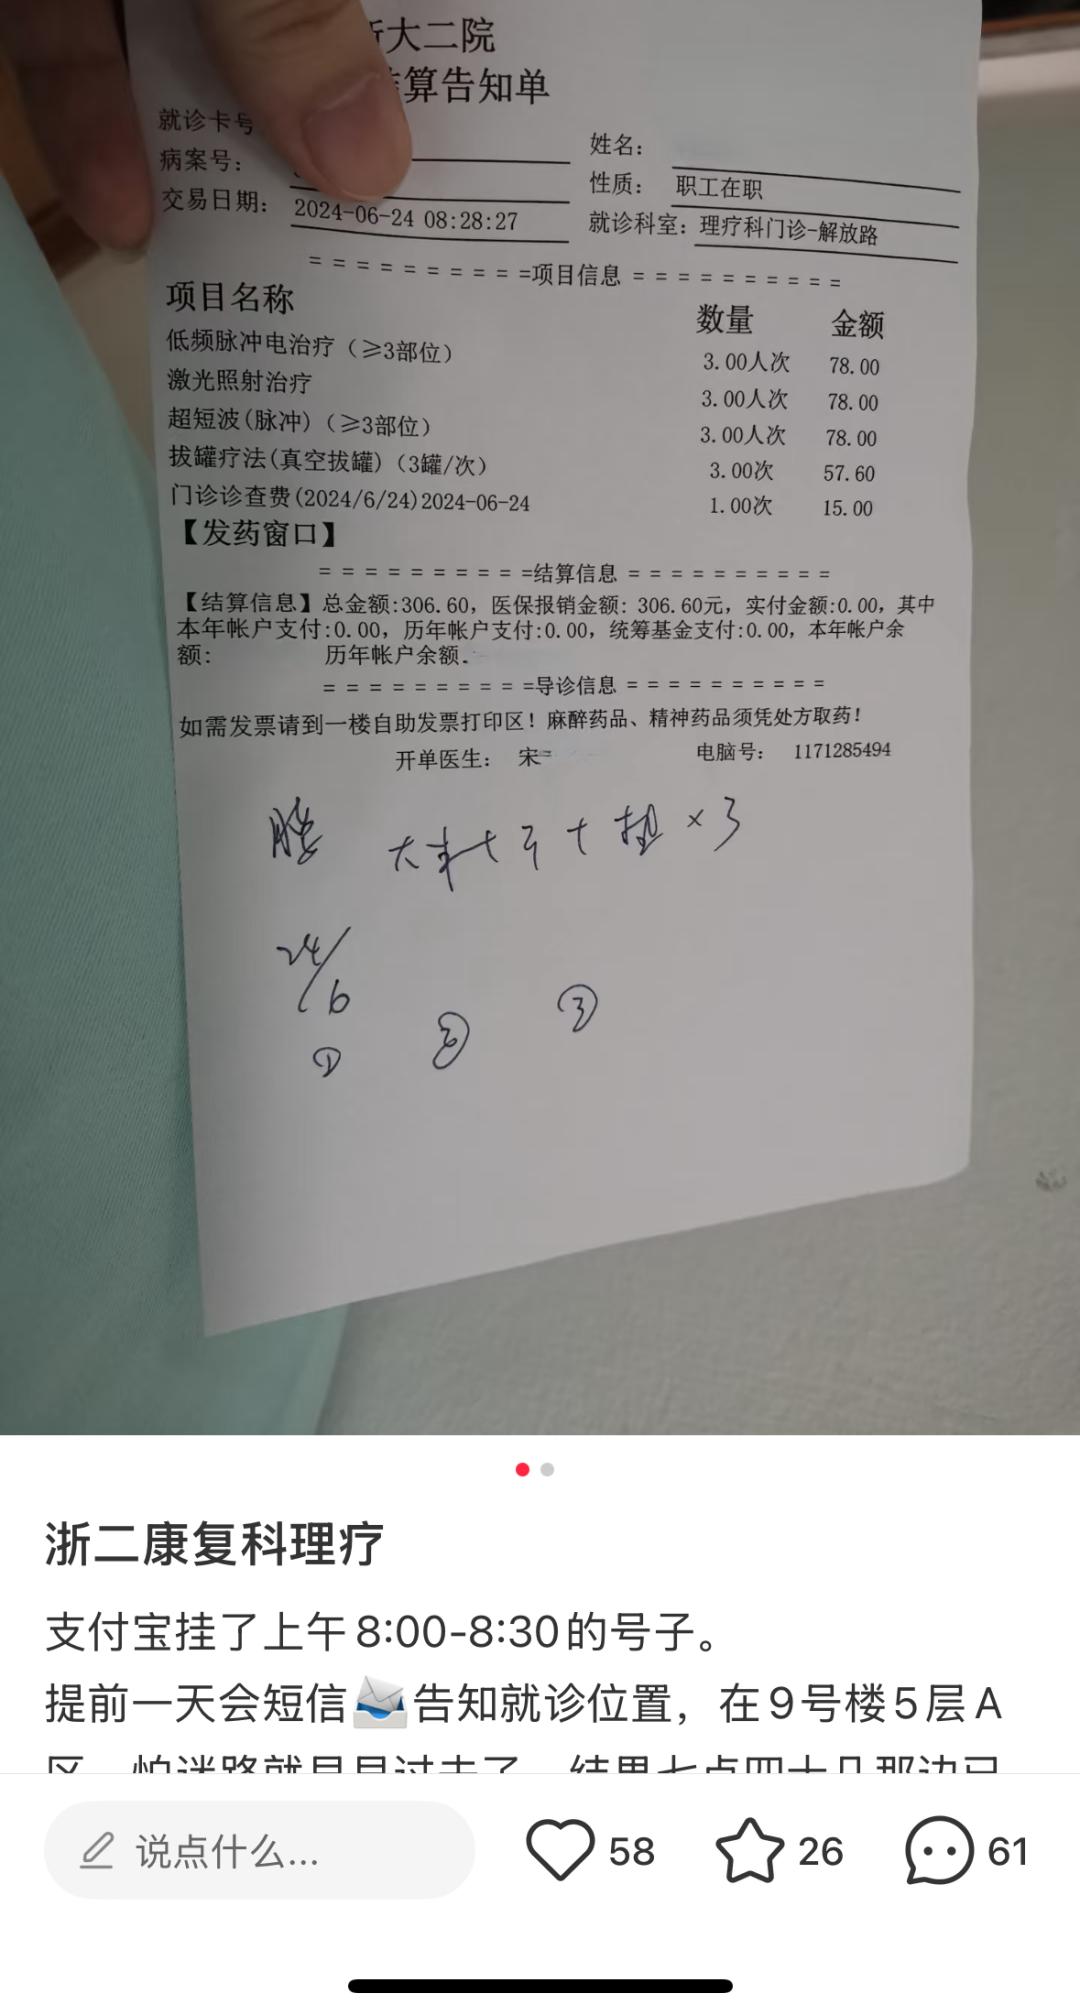 大二院
算告知单
就诊卡号
姓名：
病案号：
性质： 职工在职
交易日期： 2024-06-24 08:28:27
就诊科室：理疗科门诊-解放路
==========项目信息==========
项目名称 数量 金额
低频脉冲电治疗（≥3部位） 3.00人次 78.00
激光照射治疗 3.00人次 78.00
超短波(脉冲)（≥3部位） 3.00人次 78.00
拔罐疗法(真空拔罐)（3罐/次） 3.00次 57.60
门诊诊查费(2024/6/24)2024-06-24 1.00次 15.00
【发药窗口】
==========结算信息==========
【结算信息】总金额:306.60，医保报销金额: 306.60元，实付金额:0.00，其中
本年帐户支付:0.00，历年帐户支付:0.00，统筹基金支付:0.00，本年帐户余
额： 历年帐户余额.
==========导诊信息==========
如需发票请到一楼自助发票打印区！麻醉药品、精神药品须凭处方取药！
开单医生： 宋 电脑号： 1171285494
腰 ×3
24/6
① ② ③
浙二康复科理疗
支付宝挂了上午8:00-8:30的号子。
提前一天会短信📨告知就诊位置，在9号楼5层A
区，怕迷路就早早过去了，结果七点四十几那边已
说点什么...
58
26
61